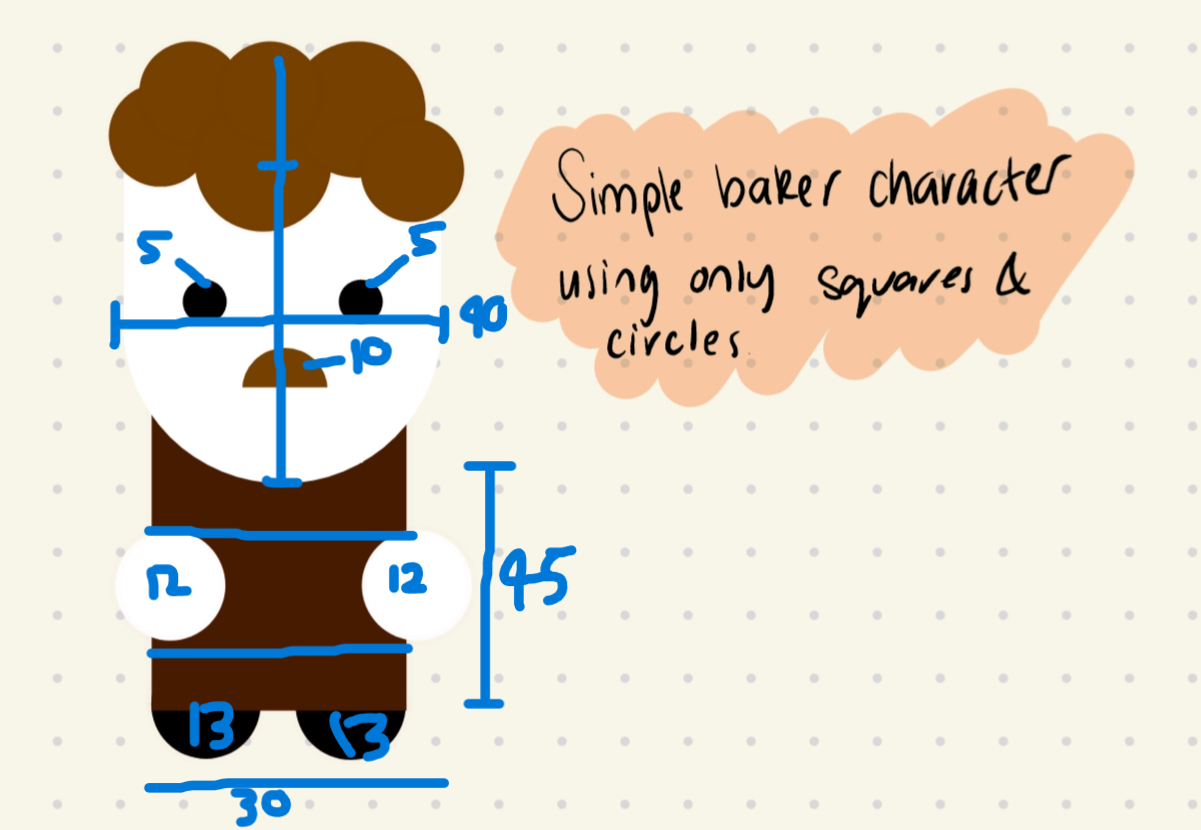 Simple baker character
using only squares &
circles.
5
5
40
10
12
12
45
13
13
30